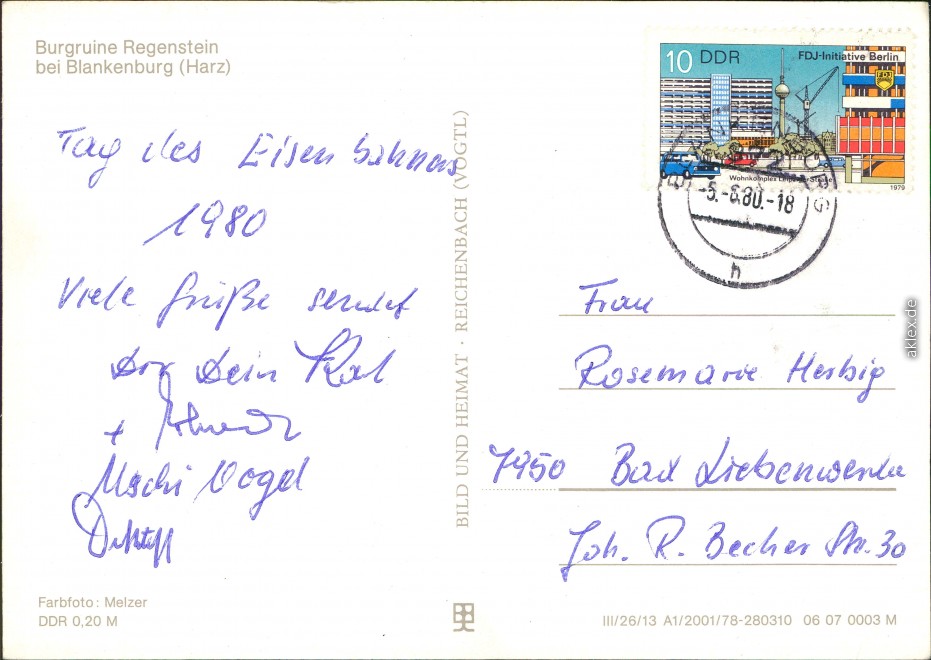 Burgruine Regenstein
bei Blankenburg (Harz)
Tag des Eisenbahners
1980
Viele Grüße sendet
Dir Dein
+
Vogel
BILD UND HEIMAT · REICHENBACH (VOGTL)
10 DDR
FDJ-Initiative Berlin
FDJ
Wohnkomplex Leipziger Straße
1979
-5.-6.80.-18
h
Frau
Rosemarie Herbig
7950 Bad Liebenwerda
Joh. R. Becher Str. 30
Farbfoto: Melzer
DDR 0,20 M
III/26/13 A1/2001/78-280310 06 07 0003 M
aklex.de